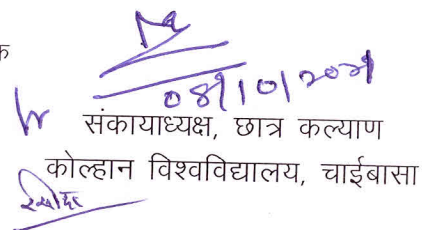 क
08/10/2021
संकायाध्यक्ष, छात्र कल्याण
कोल्हान विश्वविद्यालय, चाईबासा